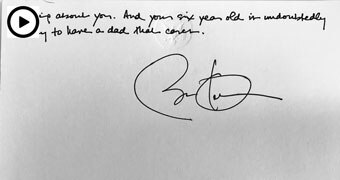 about you. And your six year old is undoubtedly
to have a dad that cares.